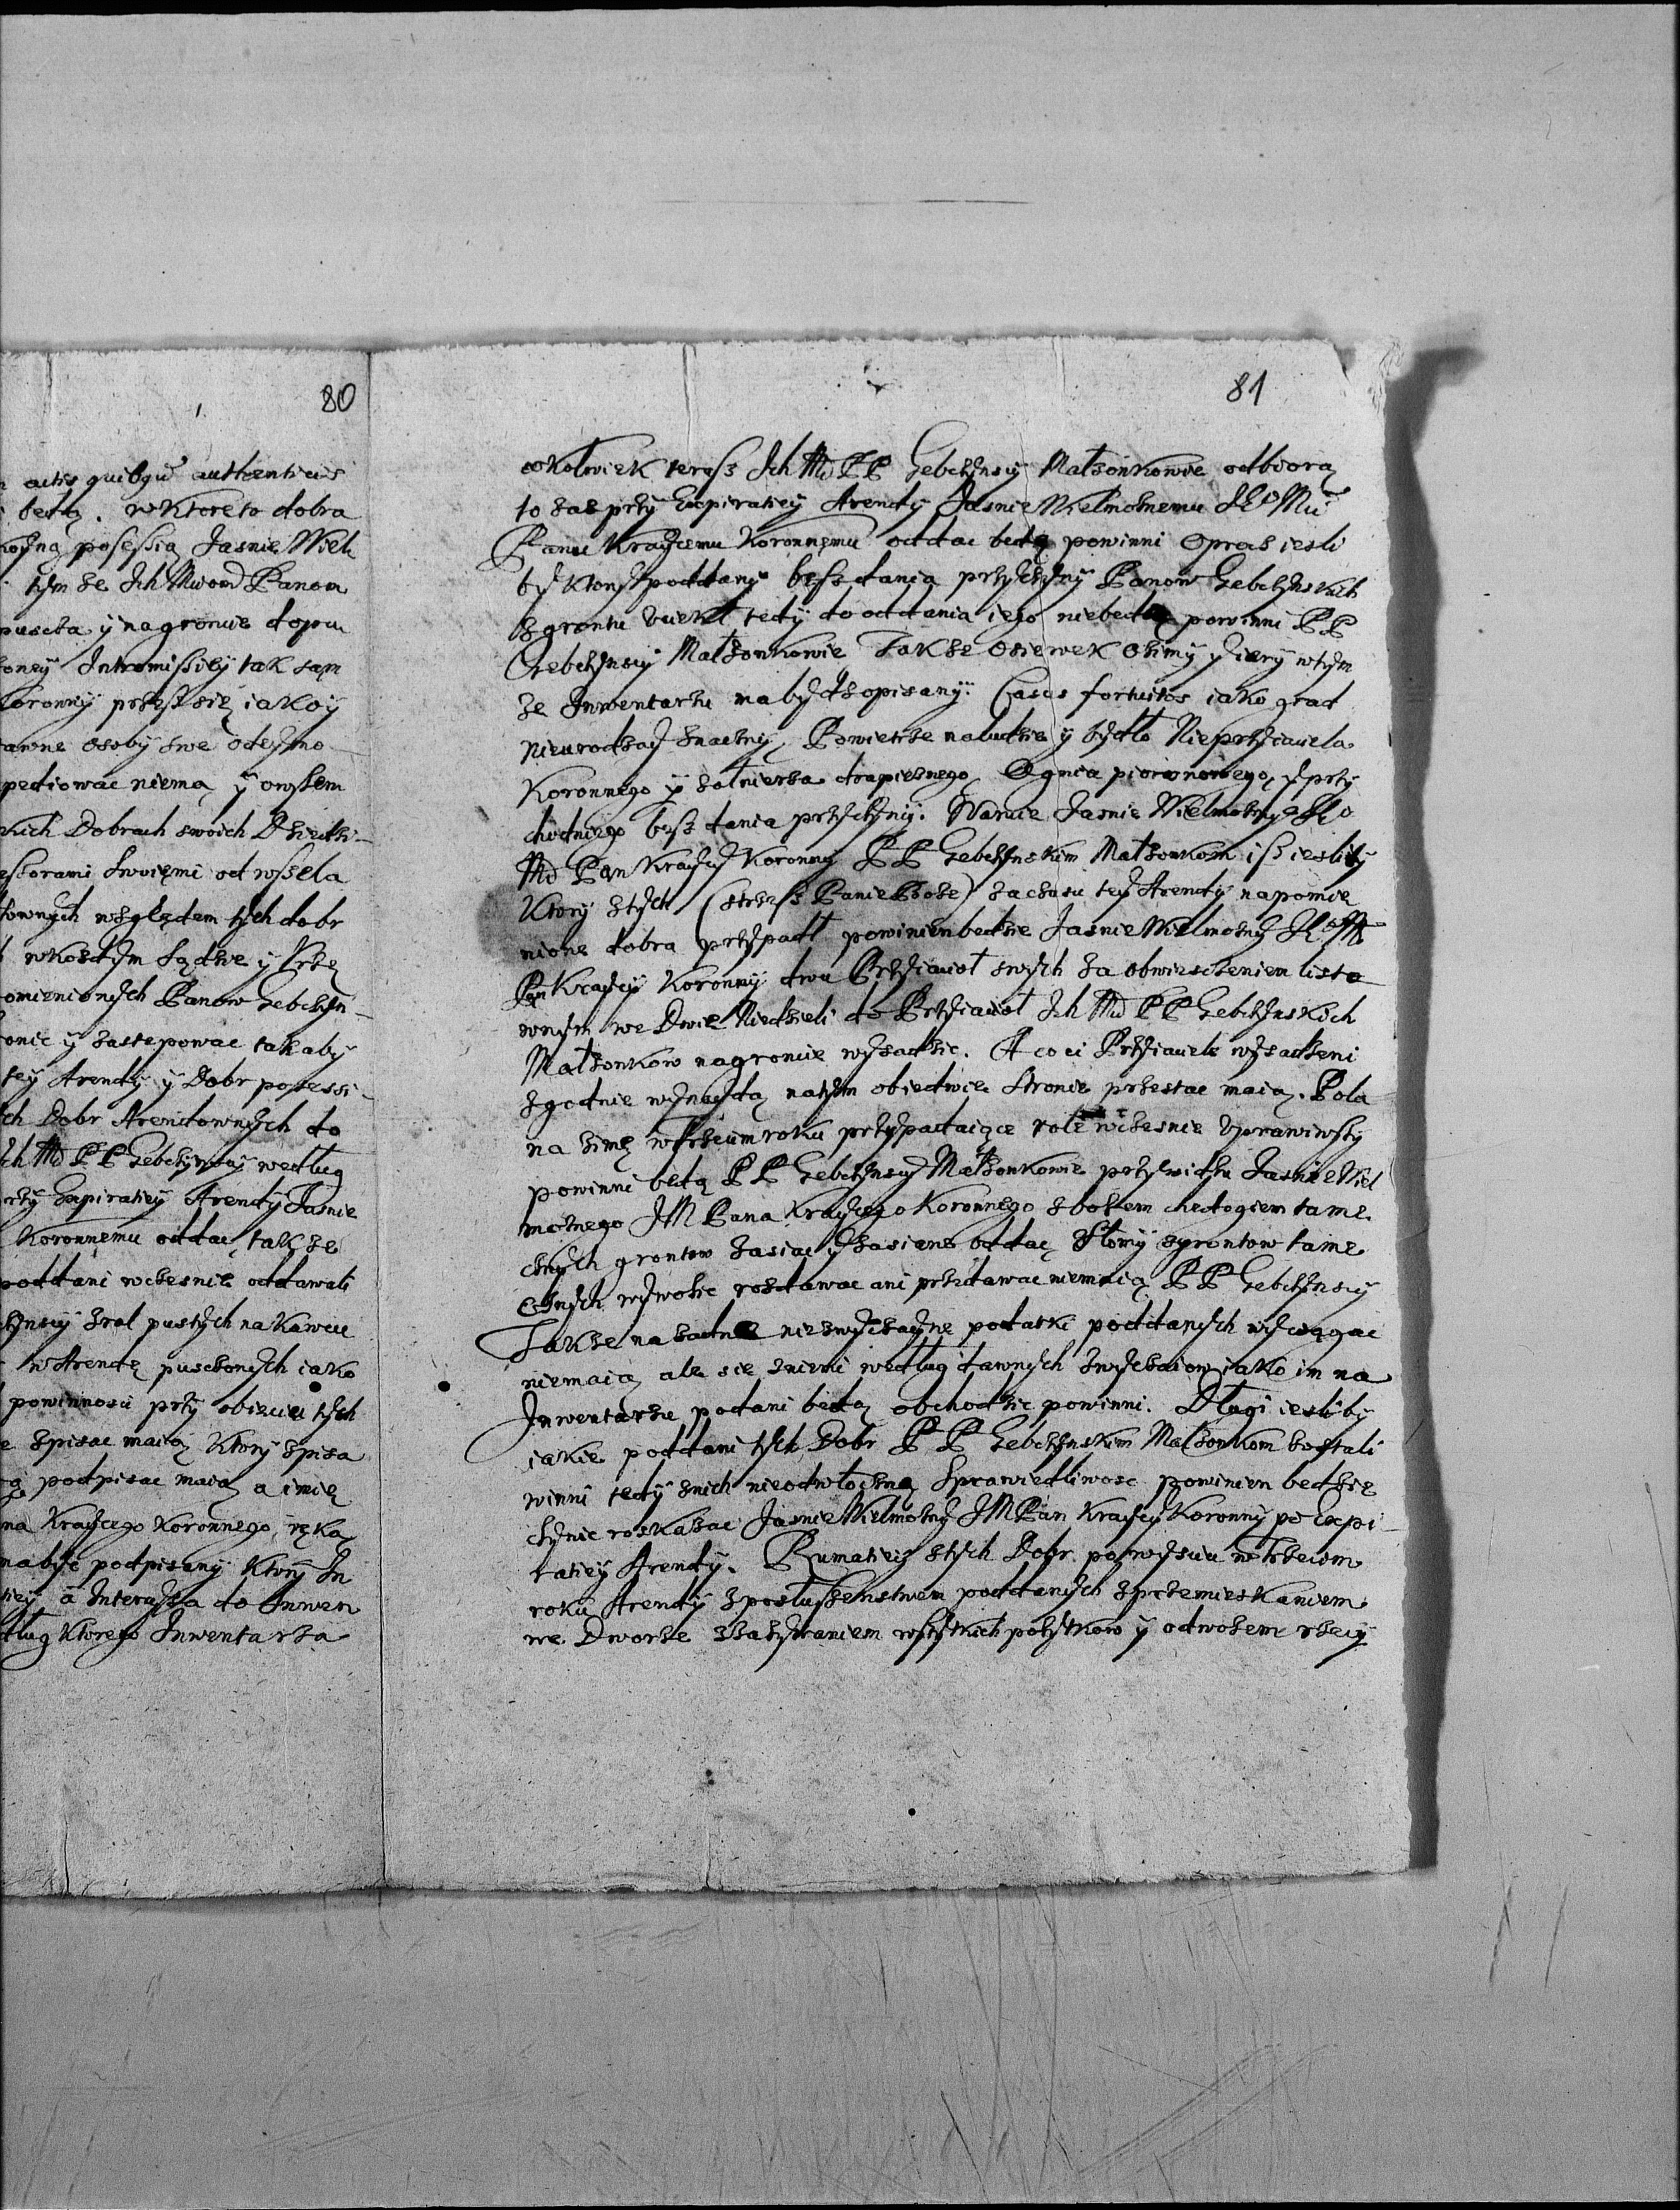 80
actis quibq́ue authenticis
będą. w Ktore to dobra
possessią Jasnie Wiel
tym ze Ich Mciow Panow
puscza y na groncie dopu
Intromissiey tak sąm
Koronny przez się iako y
osoby swe
pediowac niema, y owszem
Dobrach swoich Dziedzi-
essorami swoiemi od wszela
townych względem tych dobr
w kozdym Sądzie y
omienionych Panow Gebczyn-
onic y zastępowac tak aby
tey Arendy y Dobr possessi-
ch Dobr Arendownych do
Ich Mc PP Gebczynscy według
rzy Expiratiey Arendy Jasnie
Koronnemu oddac, tak ze
poddani wczesnie oddawali
czynscy z rol pustych na
w Arendę pusczonych iako
powinnosci przy obięciu tych
spisac maią Ktory spisa
podpisac maią a imię
na Krayczego Koronnego, ręką
ma byc podpisany Ktory In
tiey a Intercyza do Inwen
dług Ktorego Inwentarza
81
cokolwiek teraz Ich Mc PP Gebczynscy Małzonkowie odbiorą
to zas przy Expiratiey Arendy Jasnie Wielmoznemu Je° Mci
Panu Krayczemu Koronnemu oddac będą powinni Oprocz iesli
by Ktory poddany besz dania przyczyny Panow Gebczynskich
z grontu uciekł tedy do oddania iego niebędą powinni PP
Gebczynscy Małzonkowie Takze Osiewek Ozimy y iary w tym
ze Inwentarzu ma bydz opisany: Casus fortuitos iako grad
nieurodzay znaczny, Powietrze na ludzie y bydło Nieprzyiaciela
Koronnego y zołnierza drapieznego, Ognia piorunowego, y przy
chodniego besz dania przyczyny. Waruie Jasnie Wielmozny Je°
Mc Pan Krayczy Koronny PP Gebczynskim Małzonkom isz iesliby
Ktory z tych (strzesz Panie Boze) za czasu tey Arendy na pomie
nione dobra przypadł powinien będzie Jasnie Wielmozny Je° M
Pan Krayczy Koronny dwu Przyiacioł swych za obwiesczeniem listo
wnym we Dwie Niedzieli do Przyiacioł Ich Mc PP Gebczynskich
Małzonkow na groncie wysadzic. A co ci Przyiaciele wysadzeni
zgodnie wynaydą na tym obiedwie stronie przestac maią. Pola
na zimę w trzecim roku przypadaiące role wczesnie uprawiwszy
powinni będą PP Gebczynscy Małzonkowie przy Jasnie Wiel
moznego JM Pana Krayczego Koronnego zbozem chędogiem tame
cznych grontow zasiac y zasiane oddac Słomy z grontow tame
cznych wywozic rozdawac ani przedawac niemaią PP Gebczynscy
Takze na zadne niezwyczayne podatki poddanych wyciągac
niemaią, ale się z niemi według dawnych zwyczaiow iako im na
Inwentarzu podani będą obchodzic powinni. Długi iesliby
iakie poddani tych Dobr PP Gebczynskim Małzonkom zostali
winni tedy z nich nieodwłoczną Sprawiedliwosc powinien będzie
czynic roskazac Jasnie Wielmozny JM Pan Krayczy Koronny po Expi-
ratiey Arendy. Rumatiey z tych Dobr po wysciu w trzeciem
roku Arendy z posłuszenstwem poddanych z przemieskaniem
we Dworze z zazywaniem wszystkich pozytkow y odwozem rzeczy